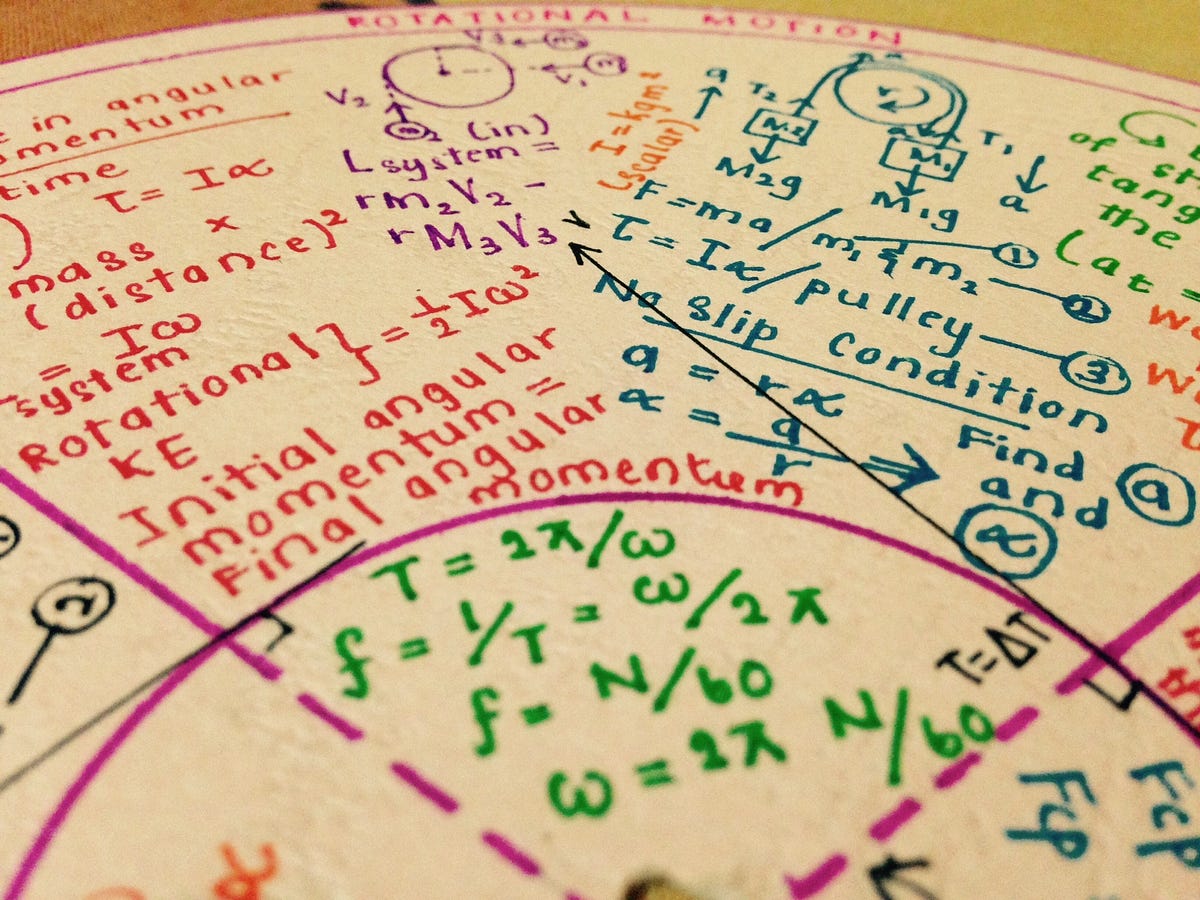 ROTATIONAL MOTION
in angular
momentum
time
τ = Iα
mass x
(distance)²
= Iω
system
Rotational } = ½Iω²
KE
Initial angular
momentum =
Final angular
momentum
V₃
m₃
V₂
m₂ (in)
Lsystem =
rm₂V₂ -
rM₃V₃
I = kgm²
(scalar)
a
T₂
M₂
M₂g
r
T₁
M₁
M₁g
a
F = ma / m₁ & m₂
1
2
τ = Iα / pulley
3
No slip condition
a = rα
α = a/r
Find a
and
α
of
tang
the
(at =
T = 2π/ω
f = 1/T = ω/2π
f = N/60
ω = 2π N/60
T = ΔT
2
Fcp
Fcp
α